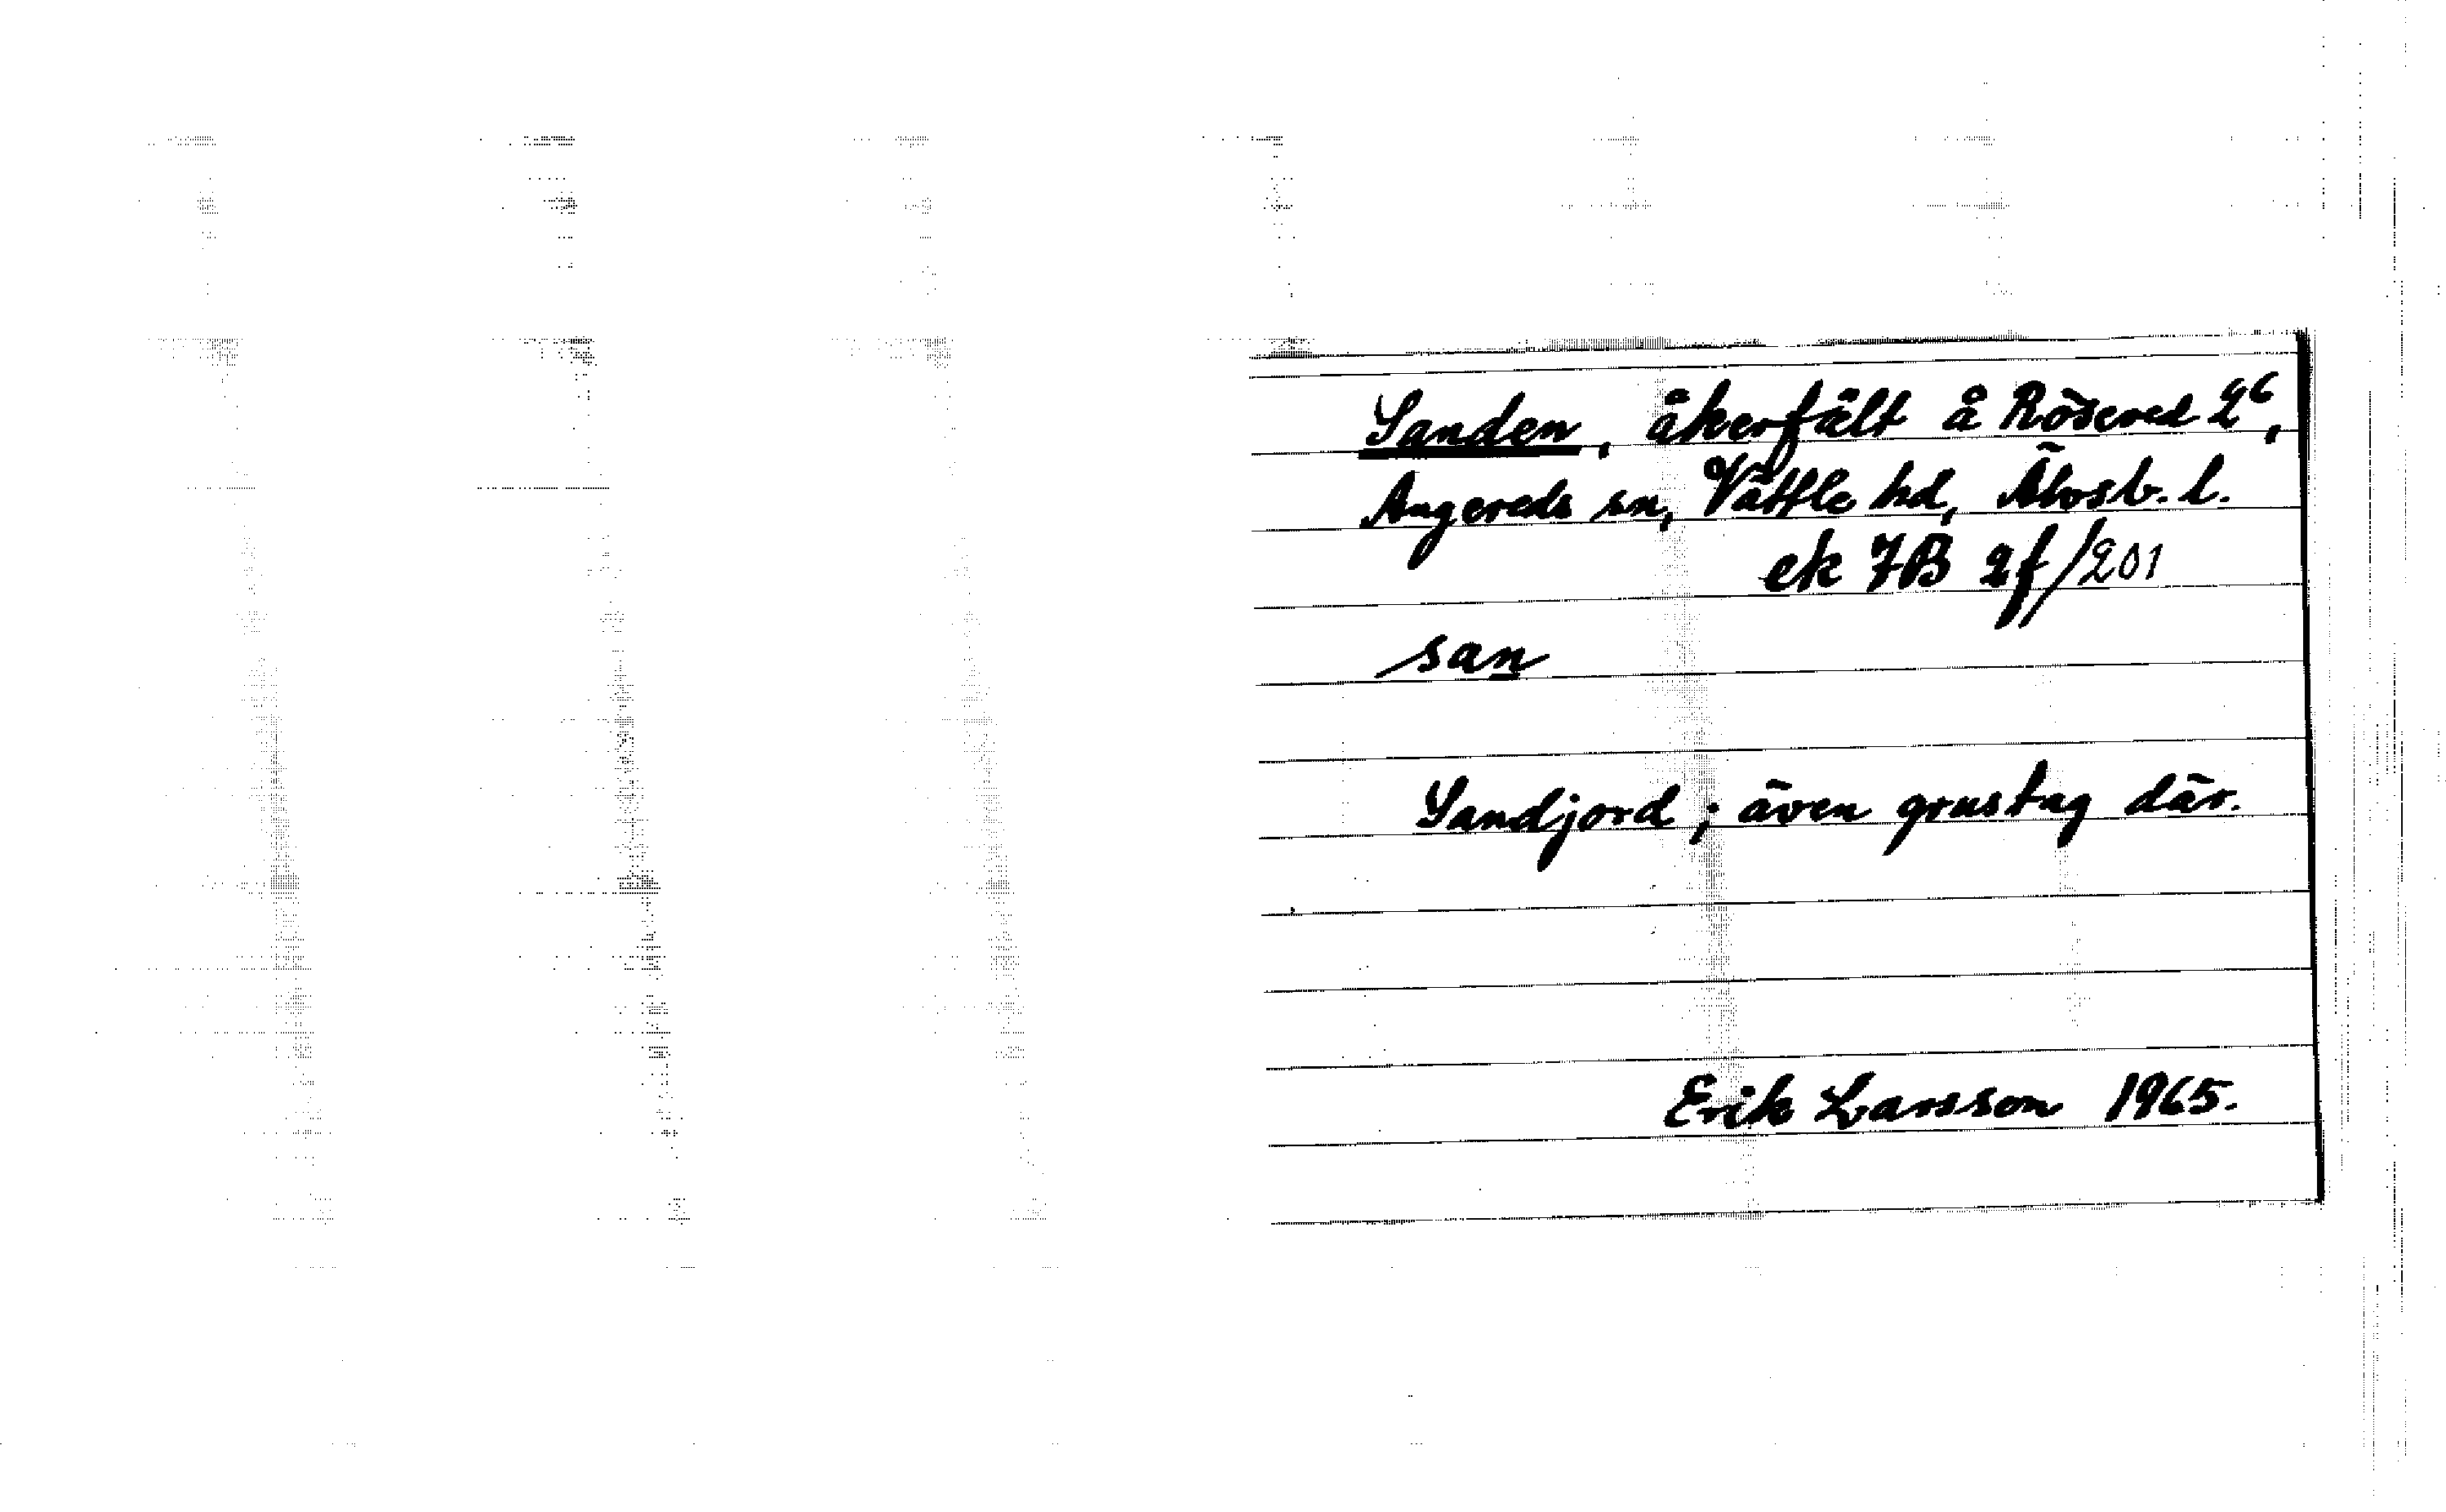 Sanden, åkerfält å Rösered 2⁶,
Angereds sn, Vättle hd, Älvsb. l.
ek 7B 2f/201
san
Sandjord; även grustag där.
Erik Larsson 1965.